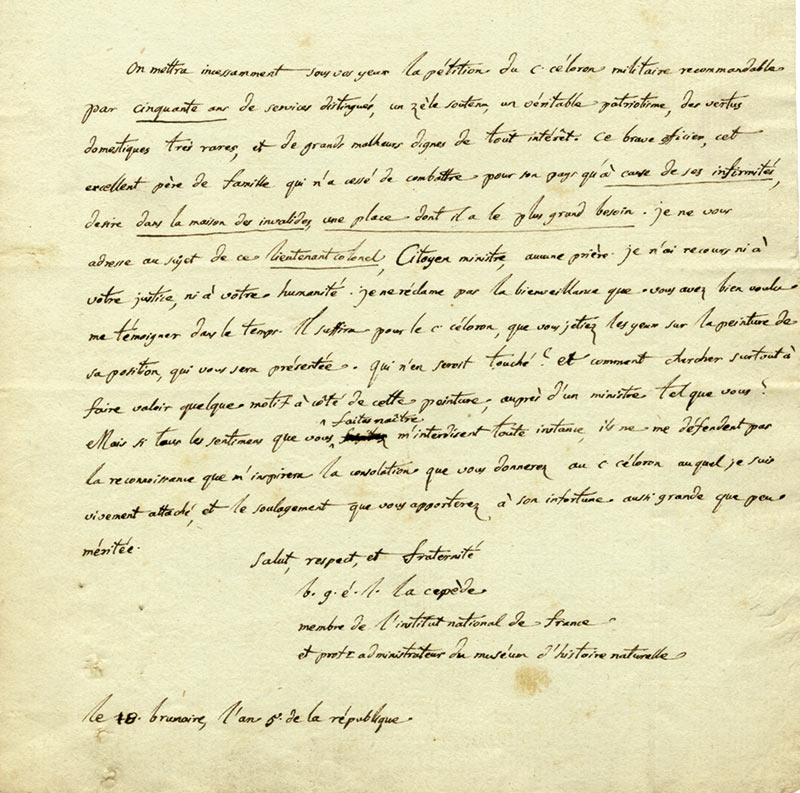 On mettra incessamment sous vos yeux la pétition du c. céloron militaire recommandable
par cinquante ans de services distingués, un zèle soutenu, un véritable patriotisme, des vertus
domestiques très rares, et de grands malheurs dignes de tout intérêt. Ce brave officier, cet
excellent père de famille qui n'a cessé de combattre pour son pays qu'à cause de ses infirmités,
desire dans la maison des invalides, une place dont il a le plus grand besoin. je ne vous
adresse au sujet de ce lieutenant colonel, Citoyen ministre, aucune prière. je n'ai recours ni à
votre justice, ni à votre humanité. je ne réclame pas la bienveillance que vous avez bien voulu
me témoigner dans le temps. Il suffira pour le c. céloron, que vous jetiez les yeux sur la peinture de
sa position, qui vous sera présentée. qui n'en seroit touché? et comment chercher surtout à
faire valoir quelque motif à côté de cette peinture, auprès d'un ministre tel que vous?
Mais si tous les sentimens que vous faites naître m'interdisent toute instance, ils ne me défendent pas
la reconnoissance que m'inspirera la consolation que vous donnerez au c céloron auquel je suis
vivement attaché, et le soulagement que vous apporterez à son infortune aussi grande que peu
méritée.
Salut, respect, et fraternité
b. g. é. l. la cepède
membre de l'institut national de france
et profr. administrateur du muséum d'histoire naturelle
le 18. brumaire, l'an 5e. de la république.